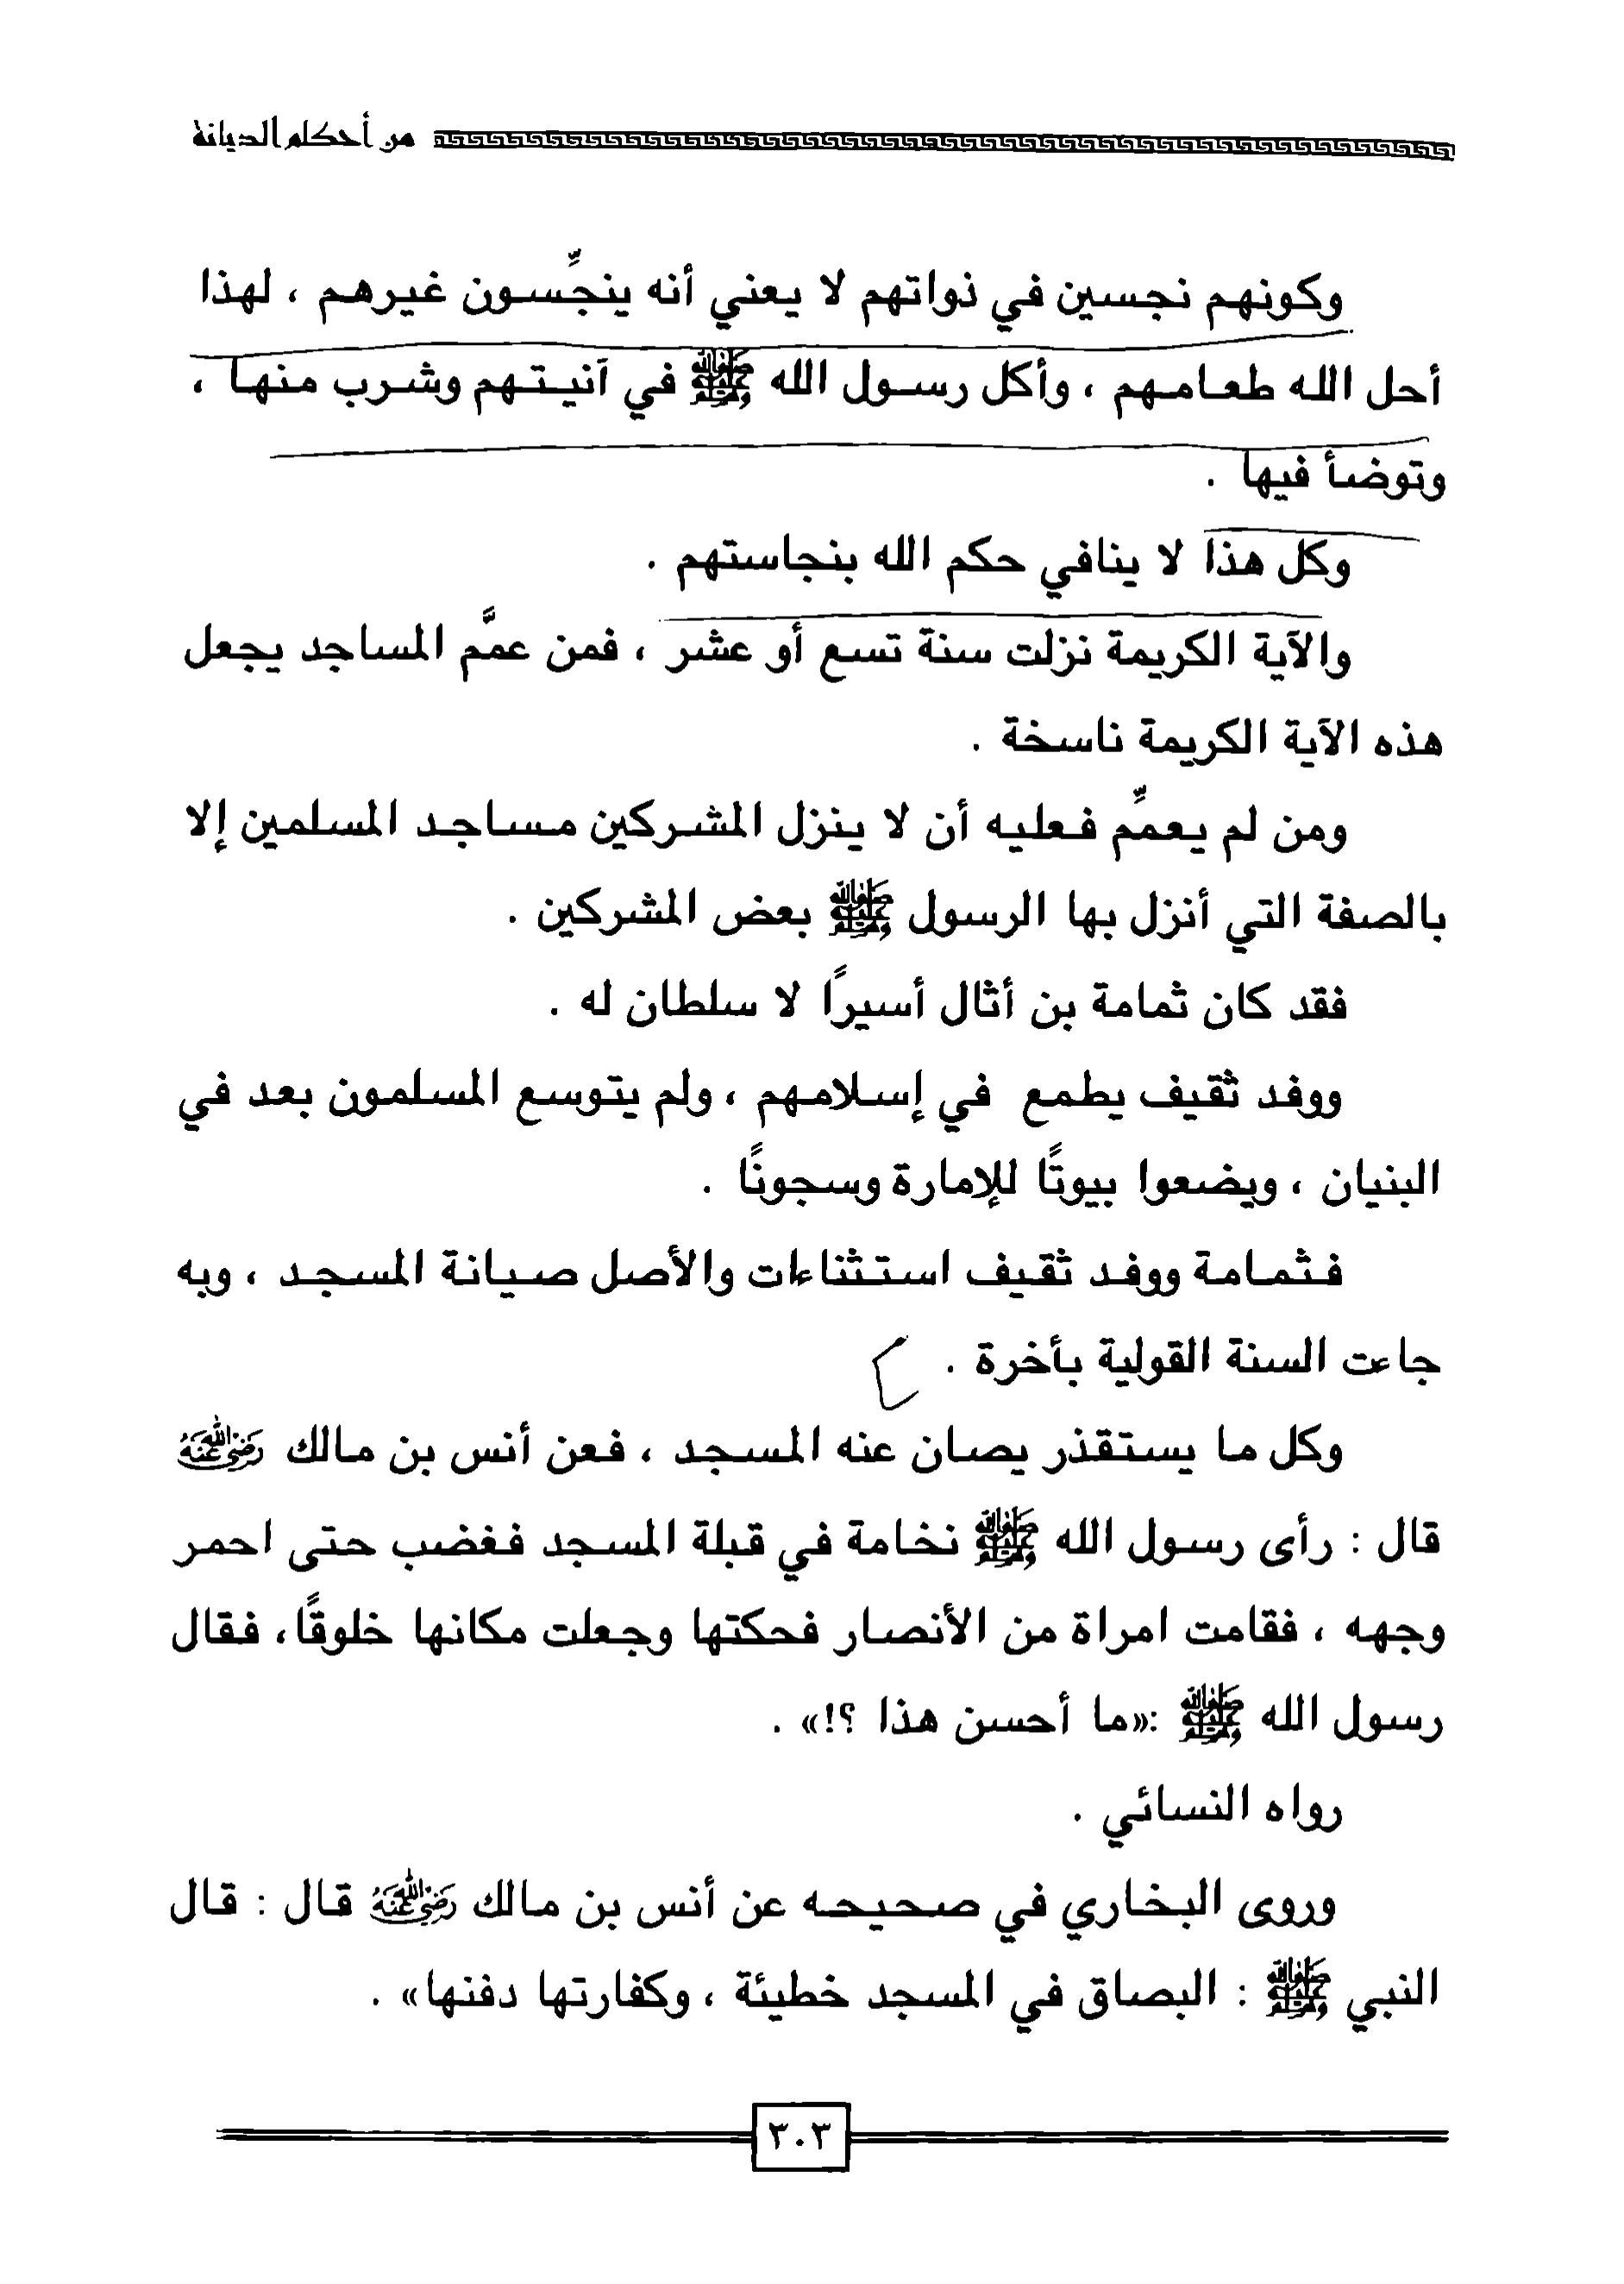 من أحكام الديانة
وكونهم نجسين في ذواتهم لا يعني أنه ينجِّسون غيرهم ، لهذا
أحل الله طعامهم ، وأكل رسول الله ﷺ في آنيتهم وشرب منها ،
وتوضأ فيها .
وكل هذا لا ينافي حكم الله بنجاستهم .
والآية الكريمة نزلت سنة تسع أو عشر ، فمن عمَّم المساجد يجعل
هذه الآية الكريمة ناسخة .
ومن لم يعمِّم فعليه أن لا ينزل المشركين مساجد المسلمين إلا
بالصفة التي أنزل بها الرسول ﷺ بعض المشركين .
فقد كان ثمامة بن أثال أسيرًا لا سلطان له .
ووفد ثقيف يطمع في إسلامهم ، ولم يتوسع المسلمون بعد في
البنيان ، ويضعوا بيوتًا للإمارة وسجونًا .
فثمامة ووفد ثقيف استثناءات والأصل صيانة المسجد ، وبه
جاءت السنة القولية بأخرة .
وكل ما يستقذر يصان عنه المسجد ، فعن أنس بن مالك رضي الله عنه
قال : رأى رسول الله ﷺ نخامة في قبلة المسجد فغضب حتى احمر
وجهه ، فقامت امراة من الأنصار فحكتها وجعلت مكانها خلوقًا، فقال
رسول الله ﷺ :«ما أحسن هذا ؟!» .
رواه النسائي .
وروى البخاري في صحيحه عن أنس بن مالك رضي الله عنه قال : قال
النبي ﷺ : البصاق في المسجد خطيئة ، وكفارتها دفنها» .
٣٠٣